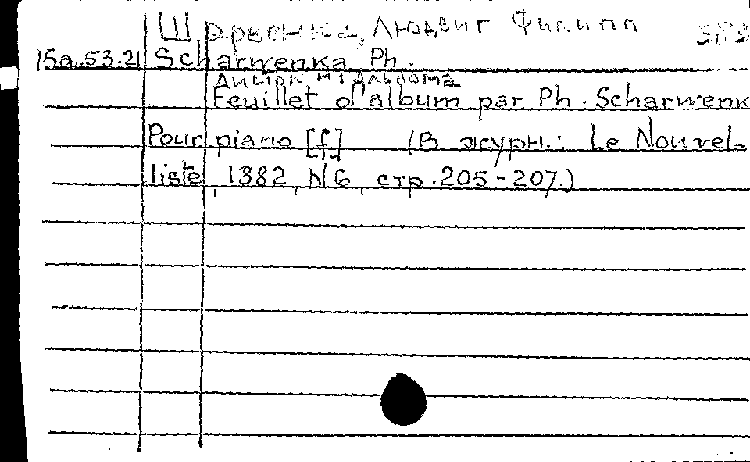 Шарвенка, Людвиг Филипп
15a.53.21 Scharwenka Ph.
Листок из альбома
Feuillet d'album par Ph. Scharwenk
Pour piano [f] (В журн.: Le Nouvel-
liste, 1882, N6, стр. 205-207.)